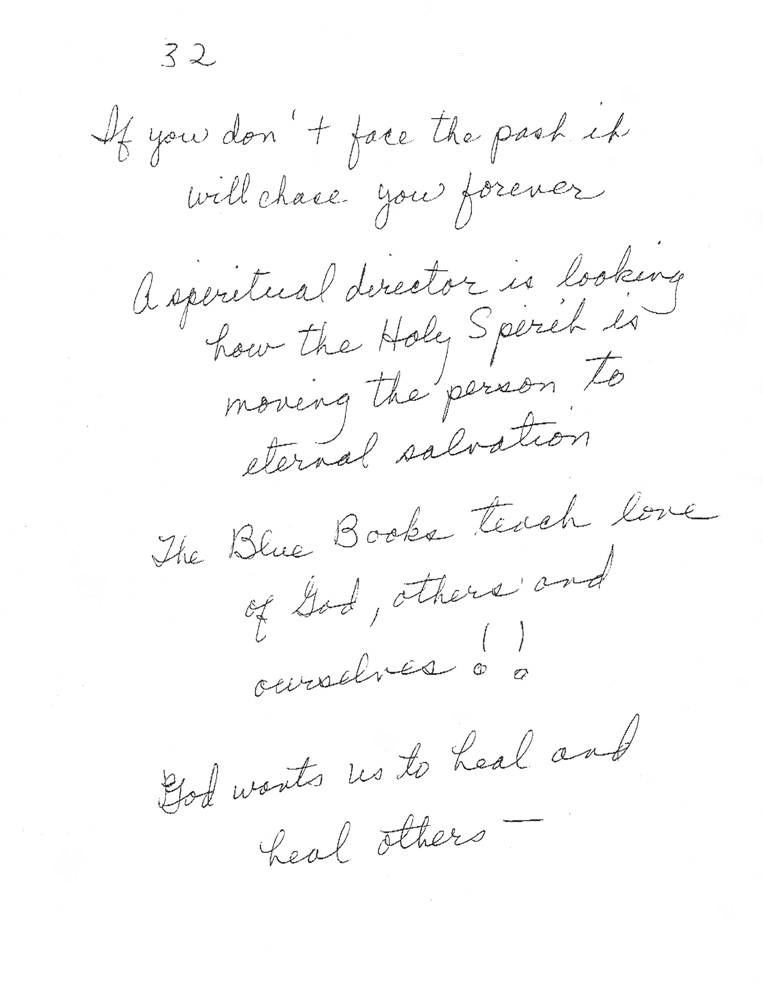 32
If you don't face the past it
will chase you forever
A spiritual director is looking
how the Holy Spirit is
moving the person to
eternal salvation
The Blue Books teach love
of God, others and
ourselves !!
God wants us to heal and
heal others —